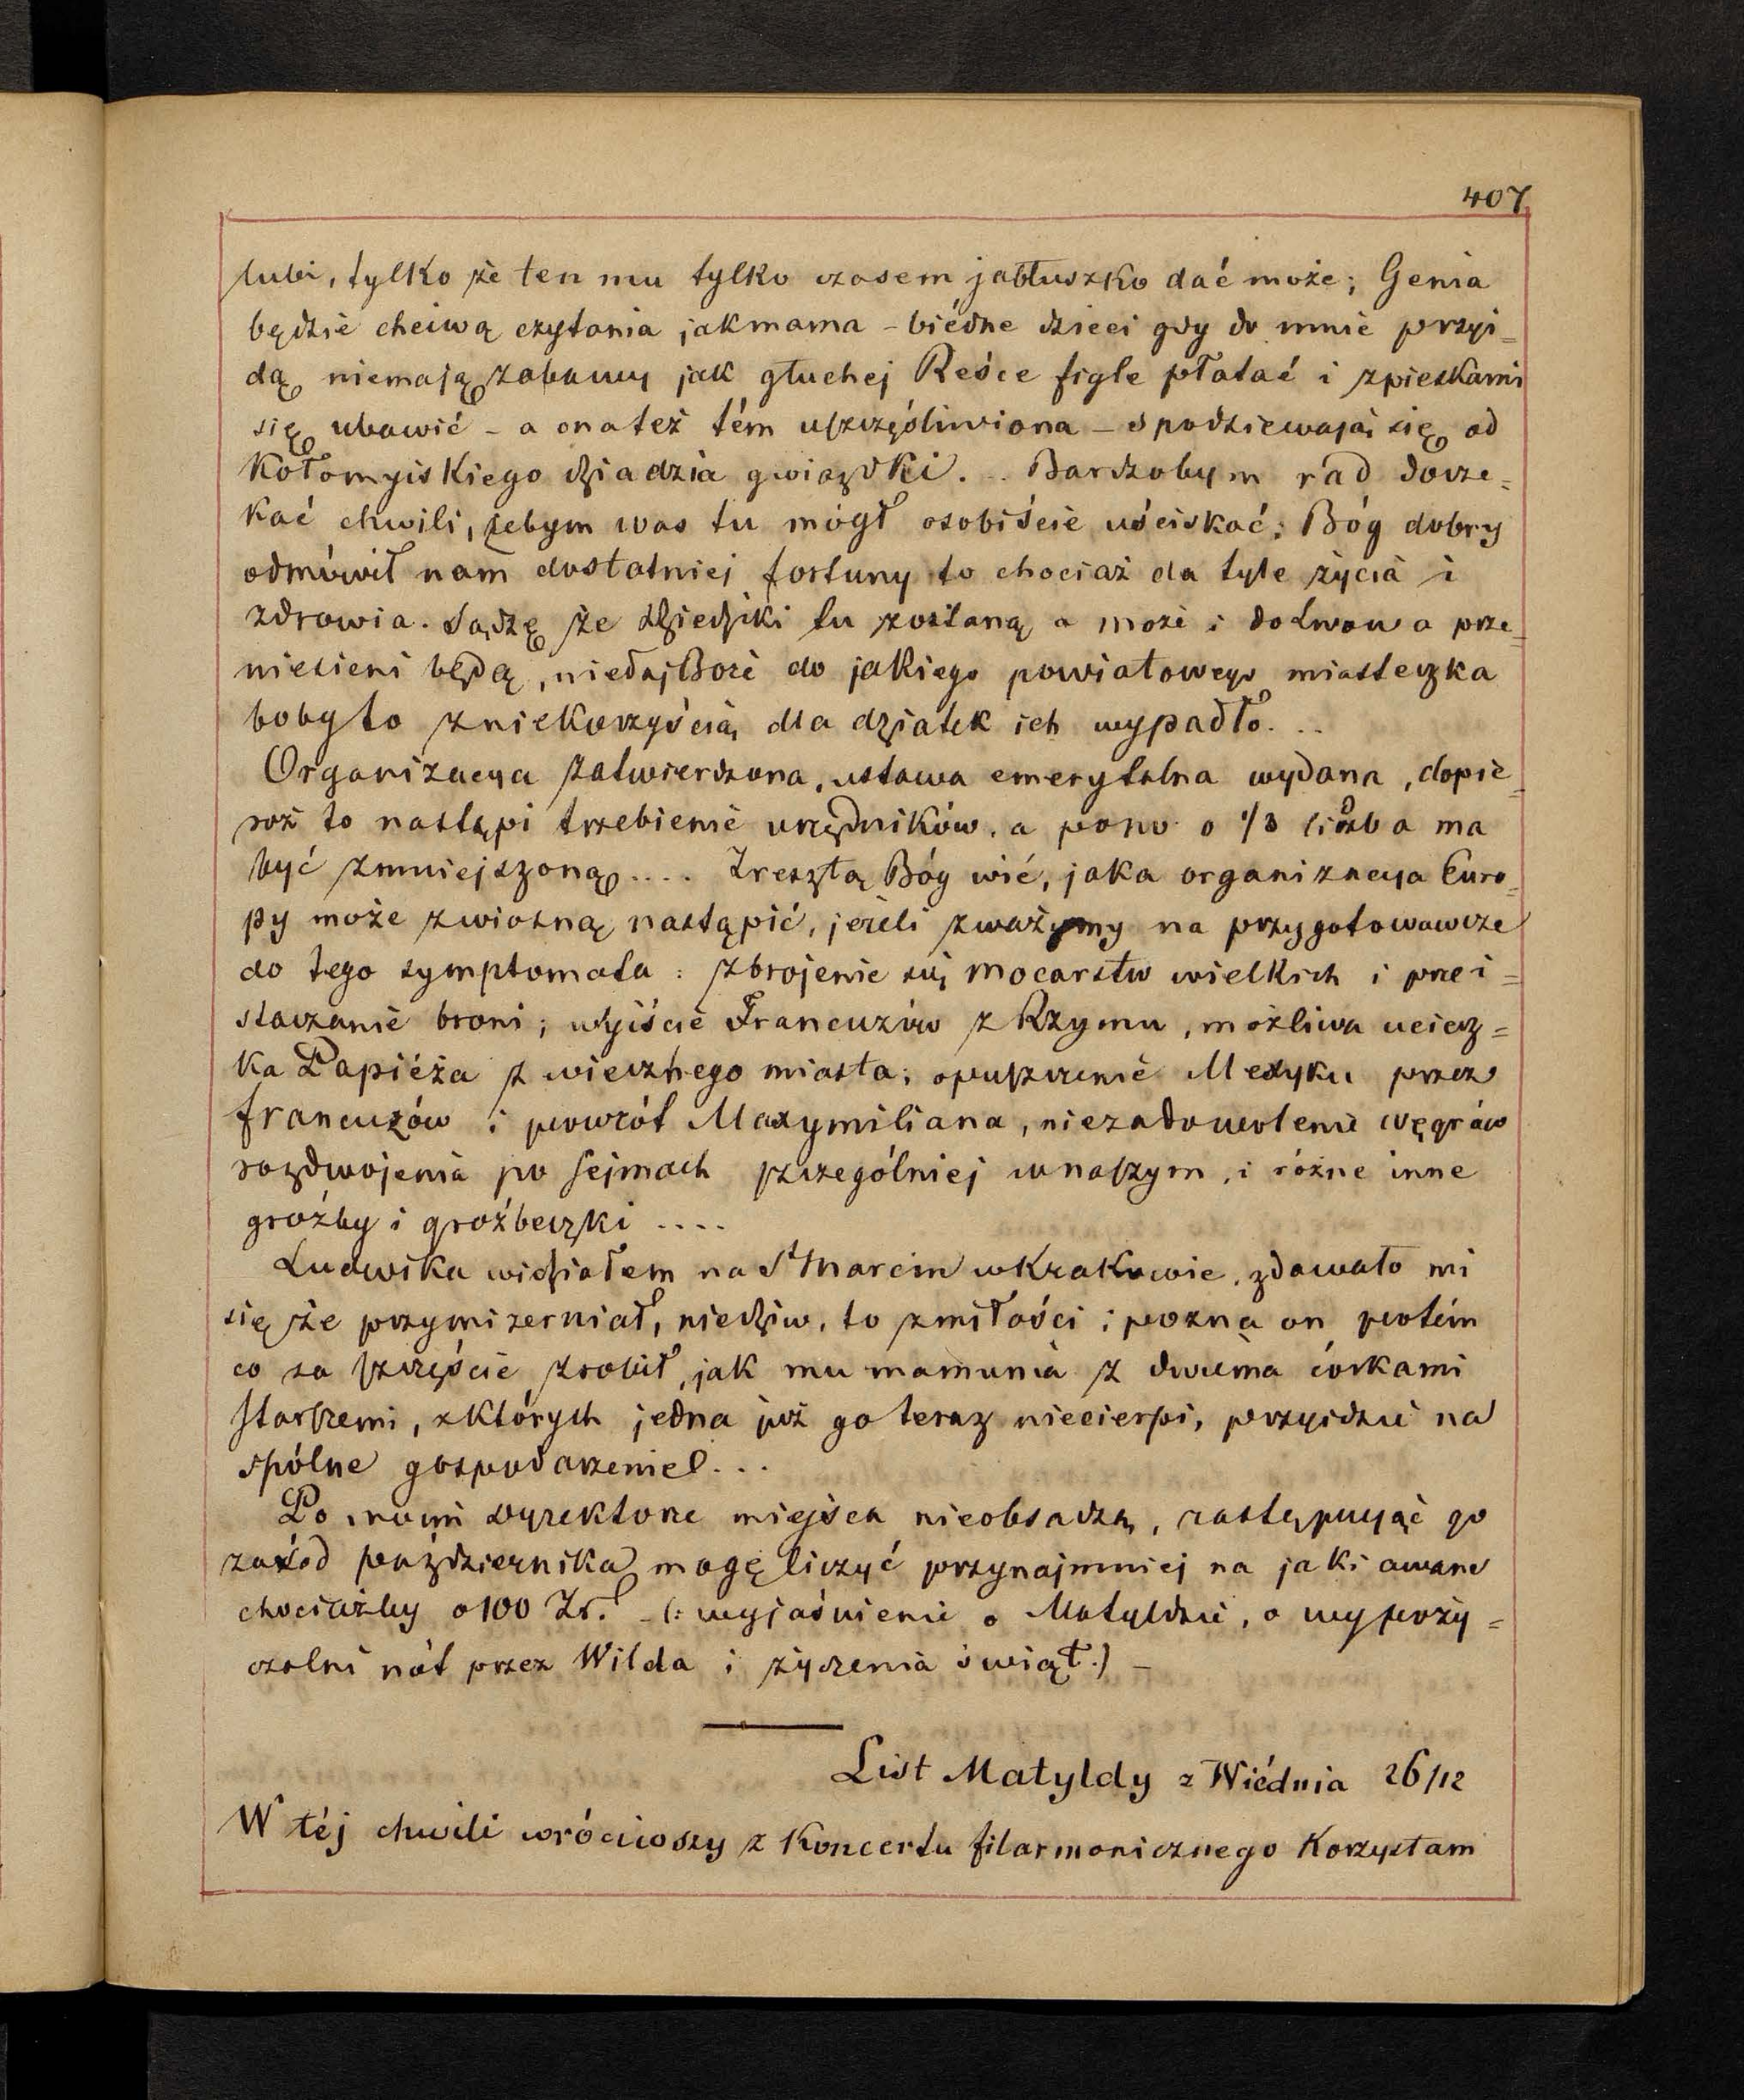 407
lubi, tylko że ten mu tylko czasem jabłuszko dać może; Genia
będzie chciwą czytania jak mama – biédne dzieci gdy do mnie przyi_
dą niemają zabawy jak głuchej Reśce figle płatać i zpieskami
się ubawić – a ona też tém uszczęśliwiona – spodziewają się od
Kołomyiskiego dziadzia gwiazdki... Bardzobym rad docze=
kać chwili, żebym was tu mógł osobiście uściskać; Bóg dobry
odmówił nam dostatniej fortuny to chociaż da tyle życia i
zdrowia. Sądzę że Edziedziki tu zostaną a może i do Lwowa prze_
niesieni będą, niedaj Boże do jakiego powiatowego miasteczka
boby to zniekorzyścią dla dziatek ich wypadło...
Organizacya zatwierdzona, ustawa emerytalna wydana, dopie_
roż to nastąpi trzebienie urzędników, a pono o 1/3 liczba ma
być zmniejszoną.... Zresztą Bóg wié, jaka organizacya Euro=
py może zwiosną nastąpić, jeżeli zważymy na przygotowawcze
do tego symptomata: zbrojenie się mocarstw wielkich i prei=
staczanie broni; wyjście Francuzów z Rzymu, możliwa uciecz=
ka Papiéża z wiecznego miasta; opuszczenie Mexyku przez
francuzów i powrót Maxymiliana, niezadowolenie węgrów
rozdwojenia po sejmach szczególniej wnaszym, i różne inne
groźby i groźbeczki ....
Ludwika widziałem na St Marcin w Krakowie, zdawało mi
się że przymizerniał, niedziw, to zmiłości; pozna on potém
co za szczęście zrobił, jak mu mamunia z dwuma córkami
starszemi, zktórych jedna już go teraz niecierpi, przyidzie na
spólne gospodarzenie!...
Po moim dyrektorze miejsca nieobsadzą, zastępując go
zaś od października mogę liczyć przynajmniej na jaki awans
chociażby o 100 Zr. – (: wyjaśnienie o Matyldzie, o wypoży=
czalni nót przez Wilda i życzenia świąt.) –
List Matyldy z Wiédnia 26/12
W téj chwili wróciwszy z Koncertu filarmonicznego Korzystam